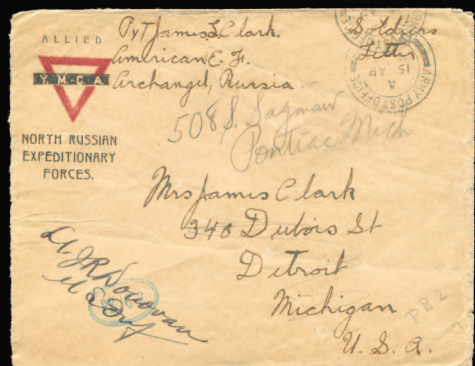 ALLIED
Y.M.C.A
NORTH RUSSIAN
EXPEDITIONARY
FORCES.
Pvt James L. Clark.
American E. F.
Archangel, Russia.
Soldiers
Letter
ARMY POST OFFICE
A
15 AP
508 S. Saginaw
Pontiac Mich
Mrs James Clark
348 Dubois St
Detroit
Michigan
U. S. A.
Lt J R Donovan
U S Inf